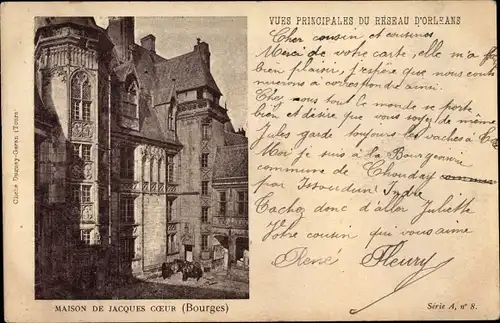 VUES PRINCIPALES DU RÉSEAU D'ORLEANS
Cher cousin et cousines
Merci de votre carte, elle m'a fait
bien plaisir, j'espère que nous conti
nuerons à correspondre ainsi.
Chez nous tout le monde se porte
bien et désire que vous soyez de même
Jules garde toujours les vaches à
Moi je suis à la Bourgeoisie
commune de Thouday
par Issoudun Indre
Tachez donc d'aller Juliette
Votre cousin que vous aime
René Fleury
Cliché Daunay-Geran (Tours)
MAISON DE JACQUES CŒUR (Bourges)
Série A, n° 8.